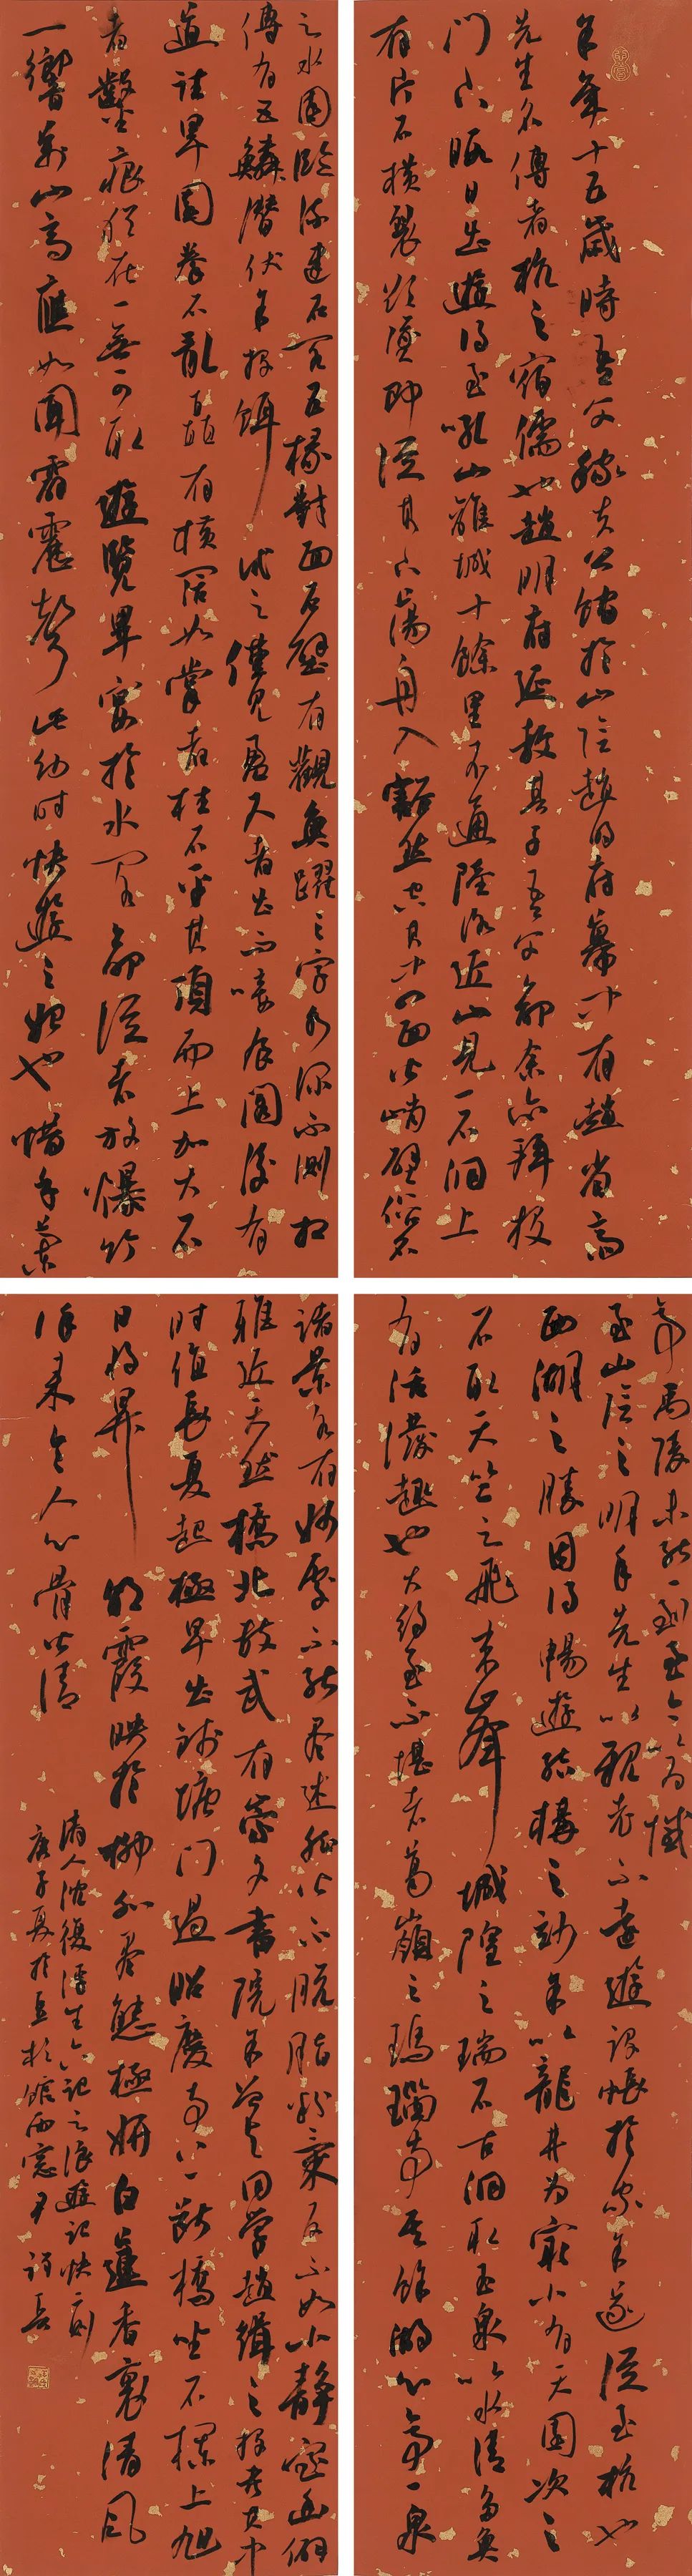 余年十五歲時吾父稼夫公館於山陰趙明府幕中有趙省齋
先生名傳者杭之宿儒也趙明府延教其子吾父命余亦拜投
門下暇日出遊得至吼山離城十餘里不通陸路近山見一石洞上
有片石橫裂欲墮即從其下蕩舟入豁然空其中四面皆峭壁俗名
之水園臨流建石閣五椽對面石壁有觀魚躍三字水深不測相
傳有巨鱗潛伏余投餌試之僅見盈尺者出而唼食閣後有
道通旱園拳石亂矗有橫闊如掌者柱石平其頂而上加大石
者鑿痕猶在一無可取遊覽畢宴於水閣命從者放爆竹
一響萬山齊應如聞霹靂聲此幼時快遊之始也惜乎蘭
亭禹陵未能一到至今以為憾
至山陰之明年先生以親老不遠遊設帳於家余遂從至杭也
西湖之勝因得暢遊結構之妙余以龍井為最小有天園次之
石取天竺之飛來峰城隍之瑞石古洞取玉泉以水清多魚
有活潑趣也大約至不堪者葛嶺之瑪瑙寺其餘湖心亭一泉
諸景各有妙處不能盡述然皆不脫脂粉氣反不如小靜室幽僻
雅近天然橋北故武有崇文書院余曾與同學趙緝之投考其中
時值長夏起極早出錢塘門過昭慶寺上斷橋坐石欄上旭
日將昇朝霞映於柳外盡態極妍白蓮香裏清風
徐來令人心骨皆清
清人沈復浮生六記之浪遊記快一則
庚子夏於五柞館西窗